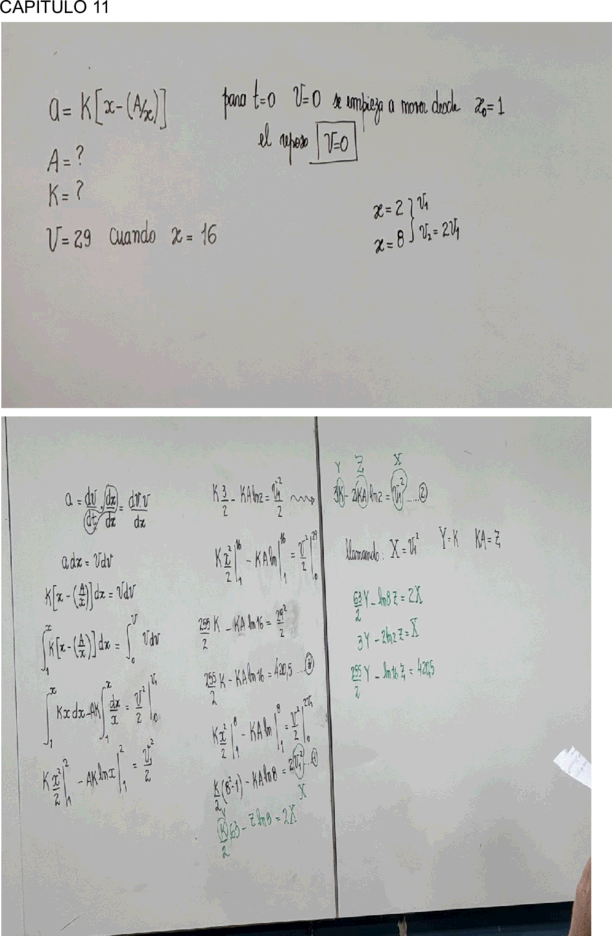 CAPITULO 11
a = K[x-(A/x)]
para t=0 V=0 se empieza a mover desde x₀=1
el reposo V=0
A = ?
K = ?
V = 29 cuando x = 16
x = 2 } V₁
x = 8 } V₂ = 2V₁
a = dv/dt · dx/dx = dv·v/dx
a dx = v dv
K[x-(A/x)]dx = v dv
∫₁ˣ K[x-(A/x)]dx = ∫₀ⱽ v dv
∫₁ˣ Kx dx - AK ∫₁ˣ dx/x = v²/2 |₀ⱽ¹
K x²/2 |₁² - AK ln x |₁² = V₁²/2
K 3/2 - KA ln2 = V₁²/2
K x²/2 |₁¹⁶ - KA ln |₁¹⁶ = V²/2 |₀²⁹
255/2 K - KA ln 16 = 29²/2
255/2 K - KA ln 16 = 420,5 ...③
K x²/2 |₁⁸ - KA ln |₁⁸ = V²/2 |₀²ⱽ¹
K/2 (8²-1) - KA ln 8 = 2V₁² ...①
X
K/2 63 - Z ln 8 = 2X
Y Z X
3K - 2KA ln 2 = V₁² ....②
llamando: X = V₁² Y = K KA = Z
63/2 Y - ln8 Z = 2X
3Y - 2ln2 Z = X
255/2 Y - ln16 Z = 420,5